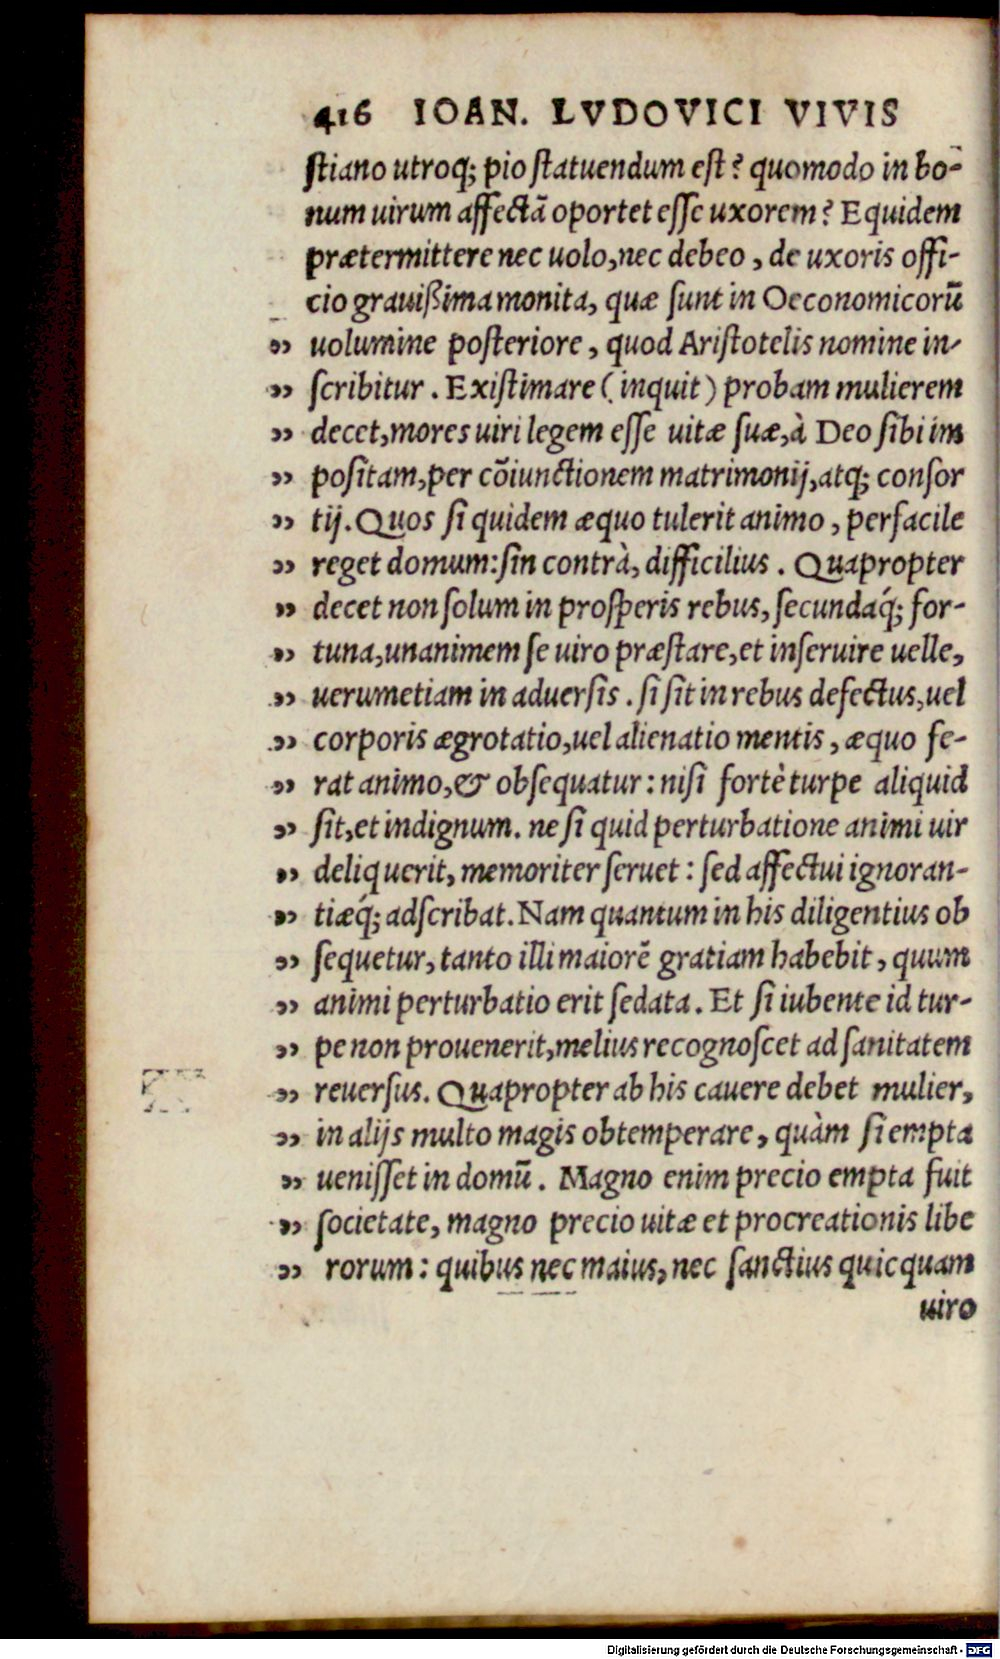 416 IOAN. LVDOVICI VIVIS
ſtiano utroq; pio ſtatuendum eſt? quomodo in bo-
num uirum affectā oportet eſſe uxorem? Equidem
prætermittere nec uolo, nec debeo, de uxoris offi-
cio grauißima monita, quæ ſunt in Oeconomicorū
„ uolumine poſteriore, quod Ariſtotelis nomine in-
„ ſcribitur. Exiſtimare (inquit) probam mulierem
„ decet, mores uiri legem eſſe uitæ ſuæ, à Deo ſibi im
„ poſitam, per cōiunctionem matrimonij, atq; conſor
„ tij. Quos ſi quidem æquo tulerit animo, perfacile
„ reget domum: ſin contrà, difficilius. Quapropter
„ decet non ſolum in proſperis rebus, ſecundaq́; for-
„ tuna, unanimem ſe uiro præſtare, et inſeruire uelle,
„ uerumetiam in aduerſis. ſi ſit in rebus defectus, uel
„ corporis ægrotatio, uel alienatio mentis, æquo fe-
„ rat animo, & obſequatur: niſi fortè turpe aliquid
„ ſit, et indignum. ne ſi quid perturbatione animi uir
„ deliquerit, memoriter ſeruet: ſed affectui ignoran-
„ tiæq́; adſcribat. Nam quantum in his diligentius ob
„ ſequetur, tanto illi maiorē gratiam habebit, quum
„ animi perturbatio erit ſedata. Et ſi iubente id tur-
„ pe non prouenerit, melius recognoſcet ad ſanitatem
„ reuerſus. Quapropter ab his cauere debet mulier,
„ in alijs multo magis obtemperare, quàm ſi empta
„ ueniſſet in domū. Magno enim precio empta fuit
„ ſocietate, magno precio uitæ et procreationis libe
„ rorum: quibus nec maius, nec ſanctius quicquam
uiro
Digitalisierung gefördert durch die Deutsche Forschungsgemeinschaft - DFG